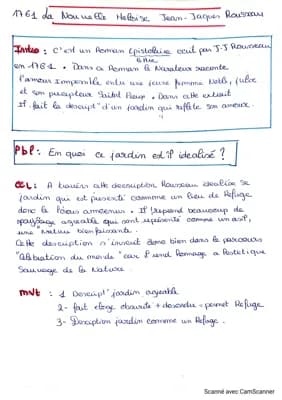 1761 La Nouvelle Héloïse Jean-Jacques Rousseau
Intro : c'est un Roman épistolaire écrit par J-J Rousseau
en 1761. Dans ce Roman le Narrateur raconte
l'amour impossible entre une jeune femme Noble, Julie
et son précepteur Saint Preux. Dans cette extrait
Il fait la descript° d'un jardin qui reflète son amour.
Pbl : En quoi ce jardin est-il idéalisé ?
CCL : A travers cette description Rousseau idéalise se
jardin qui est présenté comme un lieu de Refuge
donc le locus amoenus. Il reprend beaucoup de
paysage agréable qui sont représenté comme un asil,
une Nature bienfaisante.
Cette description s'inscrit donc bien dans le parcours
du monde" car il rend Hommage a l'esthétique
Sauvage de la Nature.
mvt : 1 Descript° jardin agréable
2- fait éloge obscurité + = permet Refuge
3- Description jardin comme un Refuge.
Scanné avec CamScanner